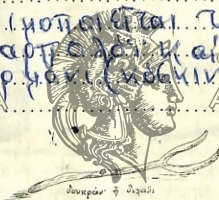 ιμοποιεῖται τ
αρπολόϊ καί
ρμόνι (κόσκιν
δουκράν' ἤ διχάλι